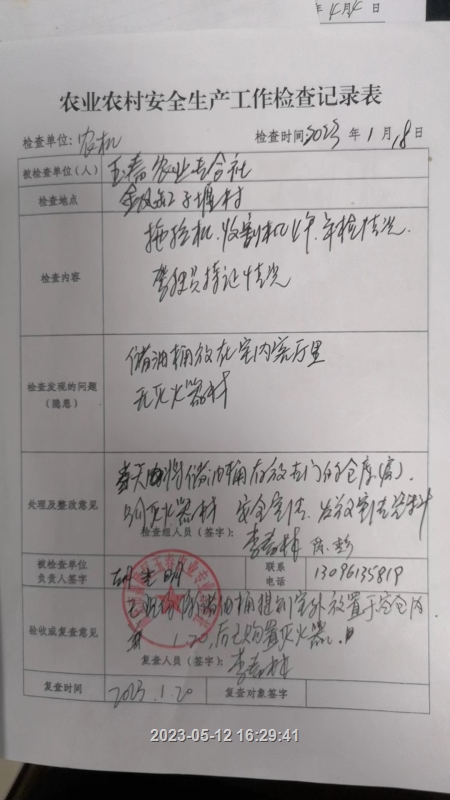 年 4月4日
农业农村安全生产工作检查记录表
检查单位: 农机 检查时间 2023 年 1 月 18 日
被检查单位(人) 玉春农业专合社
检查地点 子堰村
检查内容
拖拉机、收割机 年检情况.
驾驶员持证情况
检查发现的问题
(隐患)
储油桶放在室内客厅里
无灭火器材
处理及整改意见
当天 将储油桶存放专门的仓库(房).
灭火器材 安全宣传.
检查组人员(签字):
被检查单位
负责人签字
胡 明
联系
电话
13096135819
验收或复查意见
已 储油桶 到室外放置于 仓内.
1.20,后已购置灭火器.
复查人员(签字):
复查时间 2023.1.20 复查对象签字
2023-05-12 16:29:41